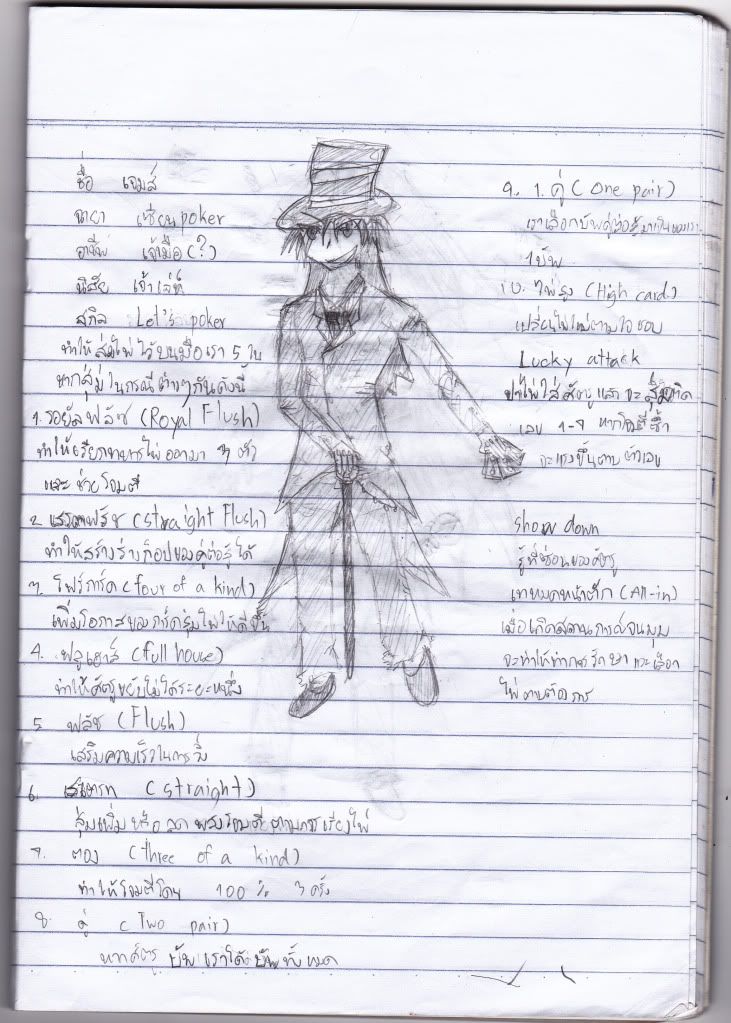 ชื่อ เจมส์
ฉายา เซียนpoker
อาชีพ เจ้ามือ(?)
นิสัย เจ้าเล่ห์
สกิล Let's poker
ทำให้สุ่มไพ่ไว้บนมือเรา 5 ใบ
หากสุ่มในกรณีต่างๆกันดังนี้
1. รอยัลฟลัช (Royal Flush)
ทำให้เรียกทหารไพ่ออกมา 3 ตัว
และช่วยโจมตี
2. (straight Flush)
ทำให้สร้างร่างก็อปของคู่ต่อสู้ได้
3. โฟร์การ์ด (four of a kind)
เพิ่มโอกาสของการ์ดสุ่มไพ่ให้ดีขึ้น
4. ฟลูเฮาส์ (full house)
ทำให้ศัตรูขยับไม่ได้ระยะหนึ่ง
5. ฟลัช (Flush)
เสริมความเร็วในการวิ่ง
6. (straight)
สุ่มเพิ่มหรือลดพลังโจมตีตามการเรียงไพ่
7. ตอง (three of a kind)
ทำให้โจมตีโดน 100% 3 ครั้ง
8. คู่ (Two pair)
หากศัตรูบัพเราได้บัพทั้งหมด
9. 1. คู่ (One pair)
เราเลือกบัพคู่ต่อสู้มาเป็นของเรา
1 บัพ
10. ไพ่สูง (High card)
เปลี่ยนไพ่ใหม่ตามใจชอบ
Lucky attack
ปาไพ่ใส่ศัตรูแล้วจะสุ่มเกิด
เลข 1-9 หากโจมตีซ้ำ
จะแรงขึ้นตามตัวเลข
Show down
รู้ที่ซ่อนของศัตรู
เทหมดหน้าตัก (All-in)
เมื่อเกิดสถานการณ์จนมุม
จะทำให้ทำการรักษาและเลือก
ไพ่ตามต้องการ